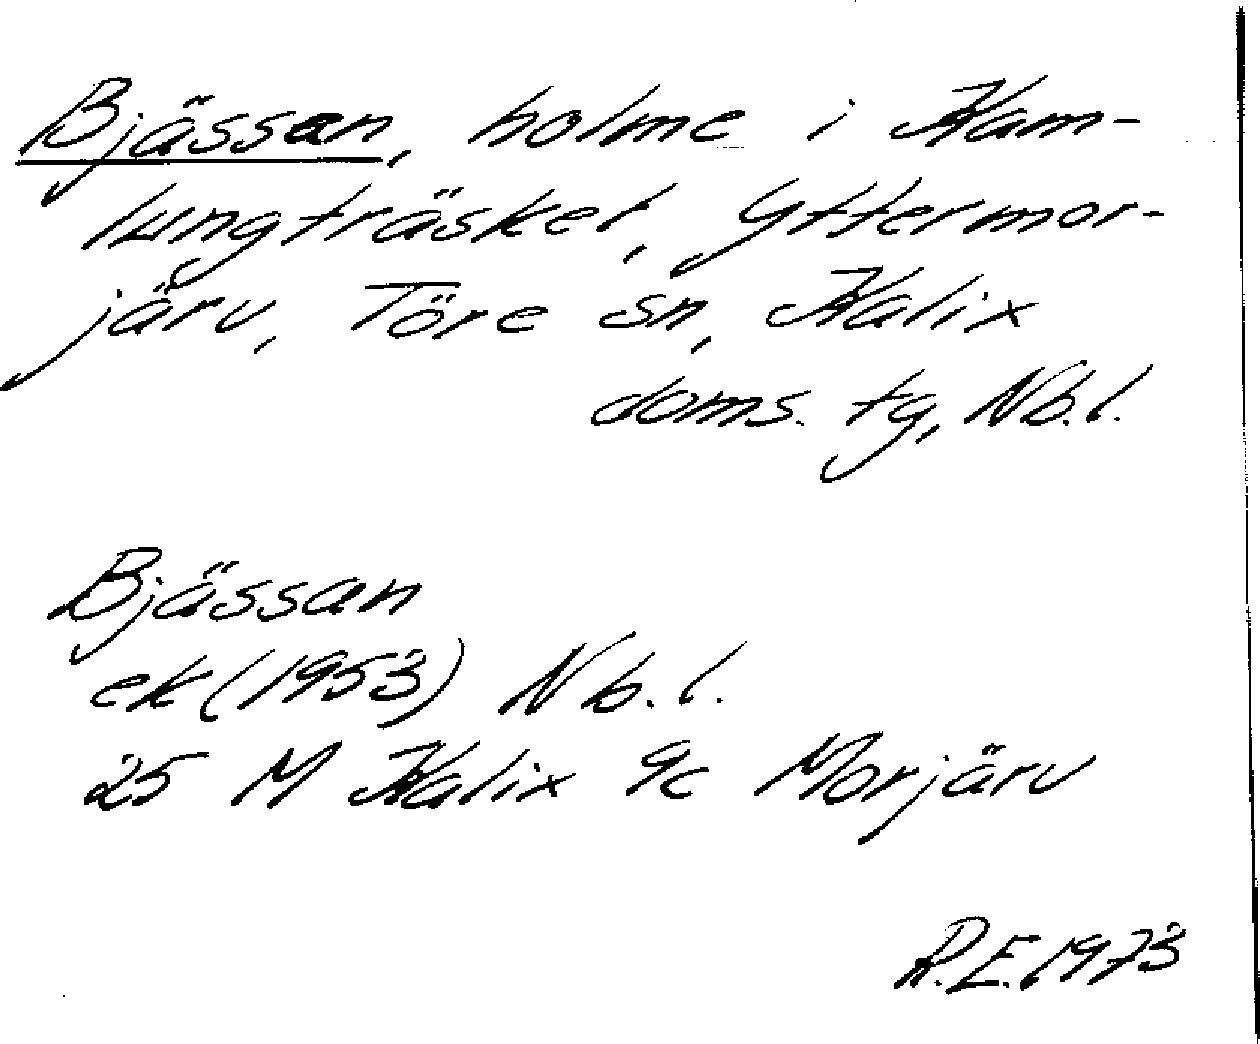 Bjässan, holme i Kam-
lungträsket, Yttermor-
järv, Töre sn, Kalix
doms. tg, Nb.l.
Bjässan
ek (1953) Nb.l.
25 M Kalix 9c Morjärv
R.E.1973